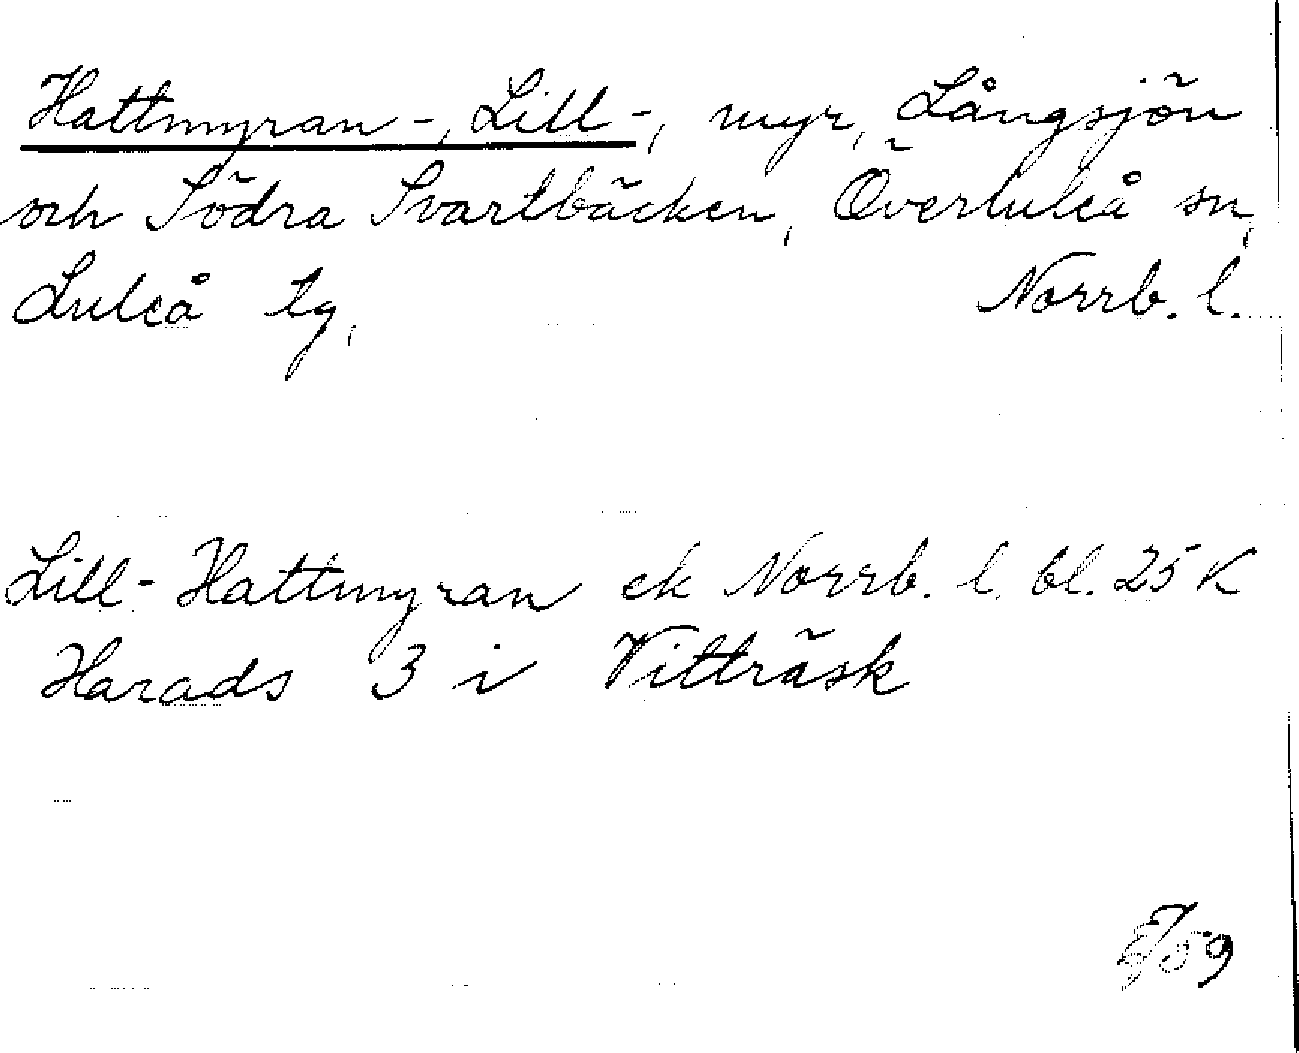 Hattmyran -, Lill -, myr, Långsjön
och Södra Svartbäcken, Överluleå sn,
Luleå tg, Norrb. l.
Lill-Hattmyran ek Norrb. l. bl. 25 K
Harads 3 i Vitträsk
/59